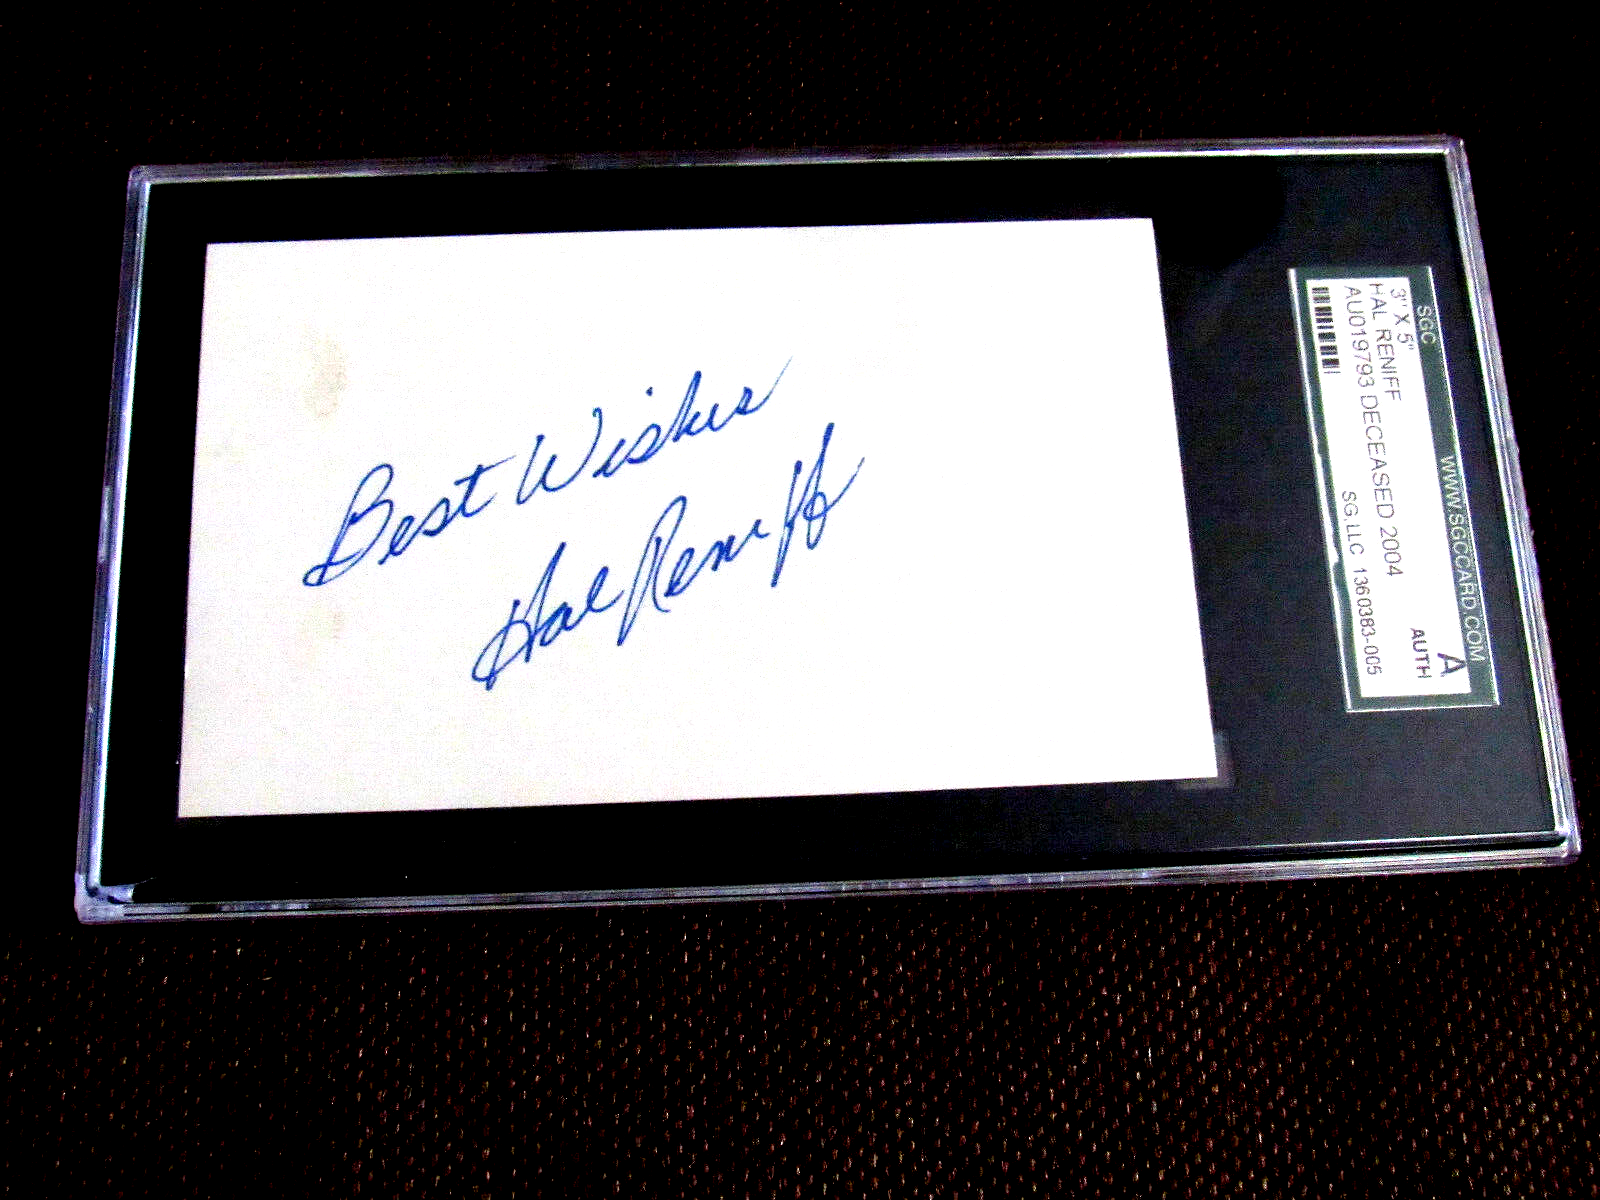 Best Wishes
Hal Reniff
SGC WWW.SGCCARD.COM
3" X 5" A
HAL RENIFF AUTH
AU019793 DECEASED 2004
SG,LLC 1360383-005